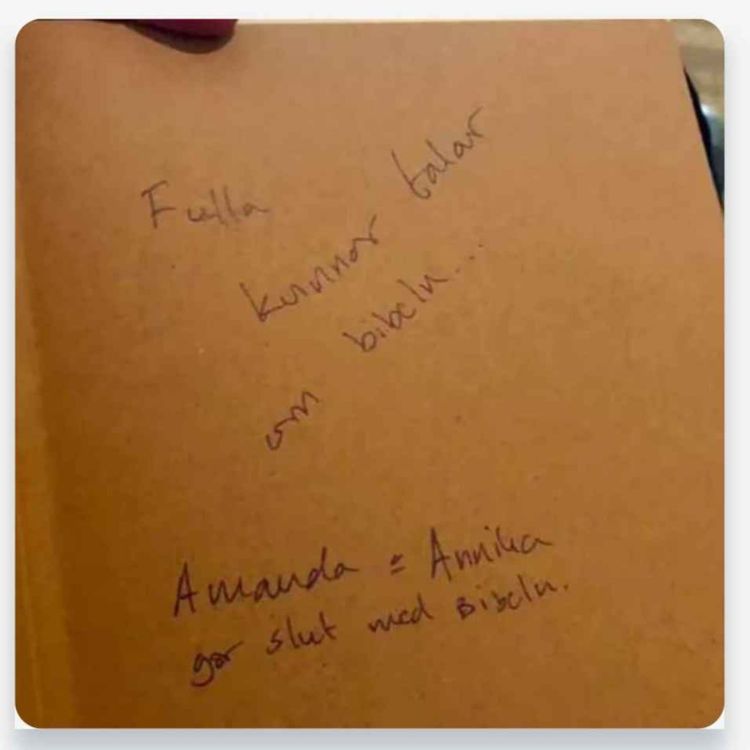 Fulla
kvinnor talar
om bibeln...
Amanda = Annika
gör slut med Bibeln.